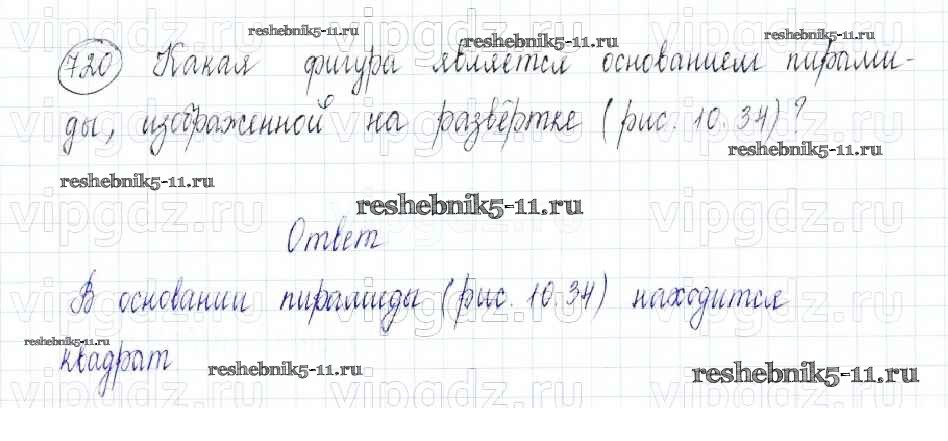 reshebnik5-11.ru reshebnik5-11.ru reshebnik5-11.ru
720 Какая фигура является основанием пирами-
ды, изображенной на развёртке (рис. 10.34)?
reshebnik5-11.ru
reshebnik5-11.ru
reshebnik5-11.ru
Ответ
В основании пирамиды (рис. 10.34) находится
reshebnik5-11.ru
квадрат
reshebnik5-11.ru reshebnik5-11.ru